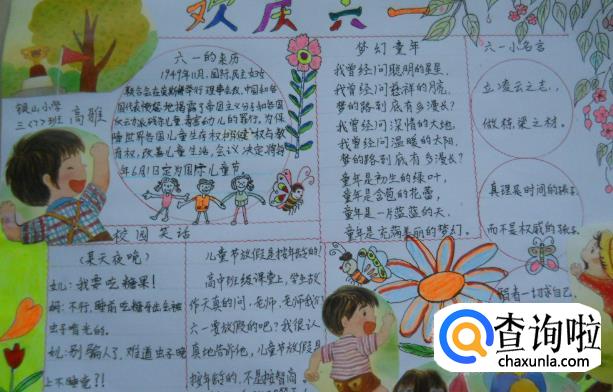 欢庆六一
银山小学
三<7>班 高雅
六一的来历
1949年11月,国际民主妇女
联合会在莫斯科举行理事会议,中国和各
国代表愤怒地揭露了帝国主义分子和各国
反动派残杀儿童毒害幼儿的罪行。为保
障世界各国儿童生存权,保健权与教
育权,改善儿童生活,会议决定将每
年6月1日定为国际儿童节
梦幻童年
我曾经问聪明的星星,
我曾经问慈祥的月亮,
梦的路到底有多漫长?
我曾经问深情的大地,
我曾经问温暖的太阳,
梦的路到底有多漫长?
童年是初生的绿叶,
童年是含苞的花蕾,
童年是一片蓝蓝的天,
童年是充满美丽的梦幻。
六一小名言
立凌云之志,
做栋梁之材。
真理是时间的孩子,
而不是权威的孩子
校园笑话
(某天夜晚)
女儿:我要吃糖果!
妈:不行,睡前吃糖牙齿会被
虫子啃光的。
女儿:别骗人了,难道虫子晚
上不睡觉?!
儿童节放假是按年龄的!
高中班级课堂上,学生故
作天真的问,老师,老师我们
六一要放假的吧?我很认
真地告诉他,儿童节放假是
按年龄的,不是按智商
查询啦
chaxunla.com